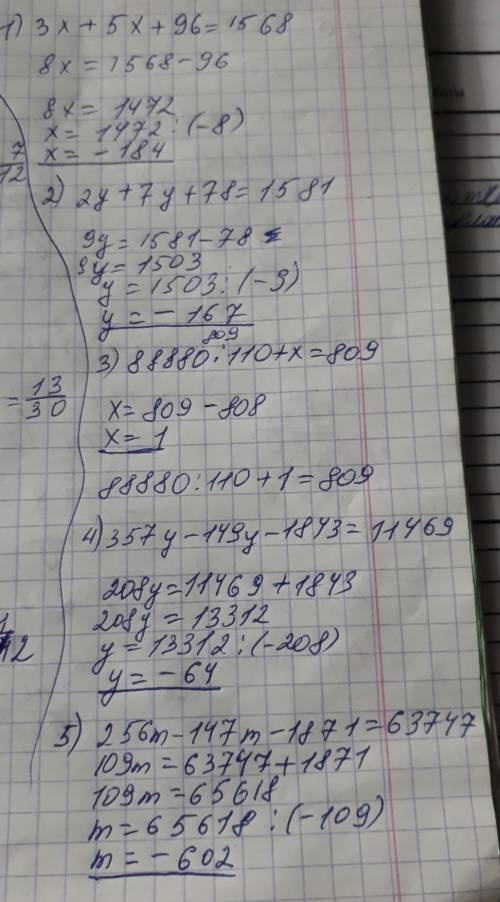 1) 3x + 5x + 96 = 1568
8x = 1568 - 96
8x = 1472
x = 1472 : (-8)
x = - 184
7
12
2) 2y + 7y + 78 = 1581
9y = 1581 - 78
9y = 1503
y = 1503 : (-9)
y = - 167
809
3) 88880 : 110 + x = 809
= 13
30
x = 809 - 808
x = 1
88880 : 110 + 1 = 809
4) 357y - 149y - 1843 = 11469
208y = 11469 + 1843
208y = 13312
y = 13312 : (-208)
y = - 64
5) 256m - 147m - 1871 = 63747
109m = 63747 + 1871
109m = 65618
m = 65618 : (-109)
m = - 602